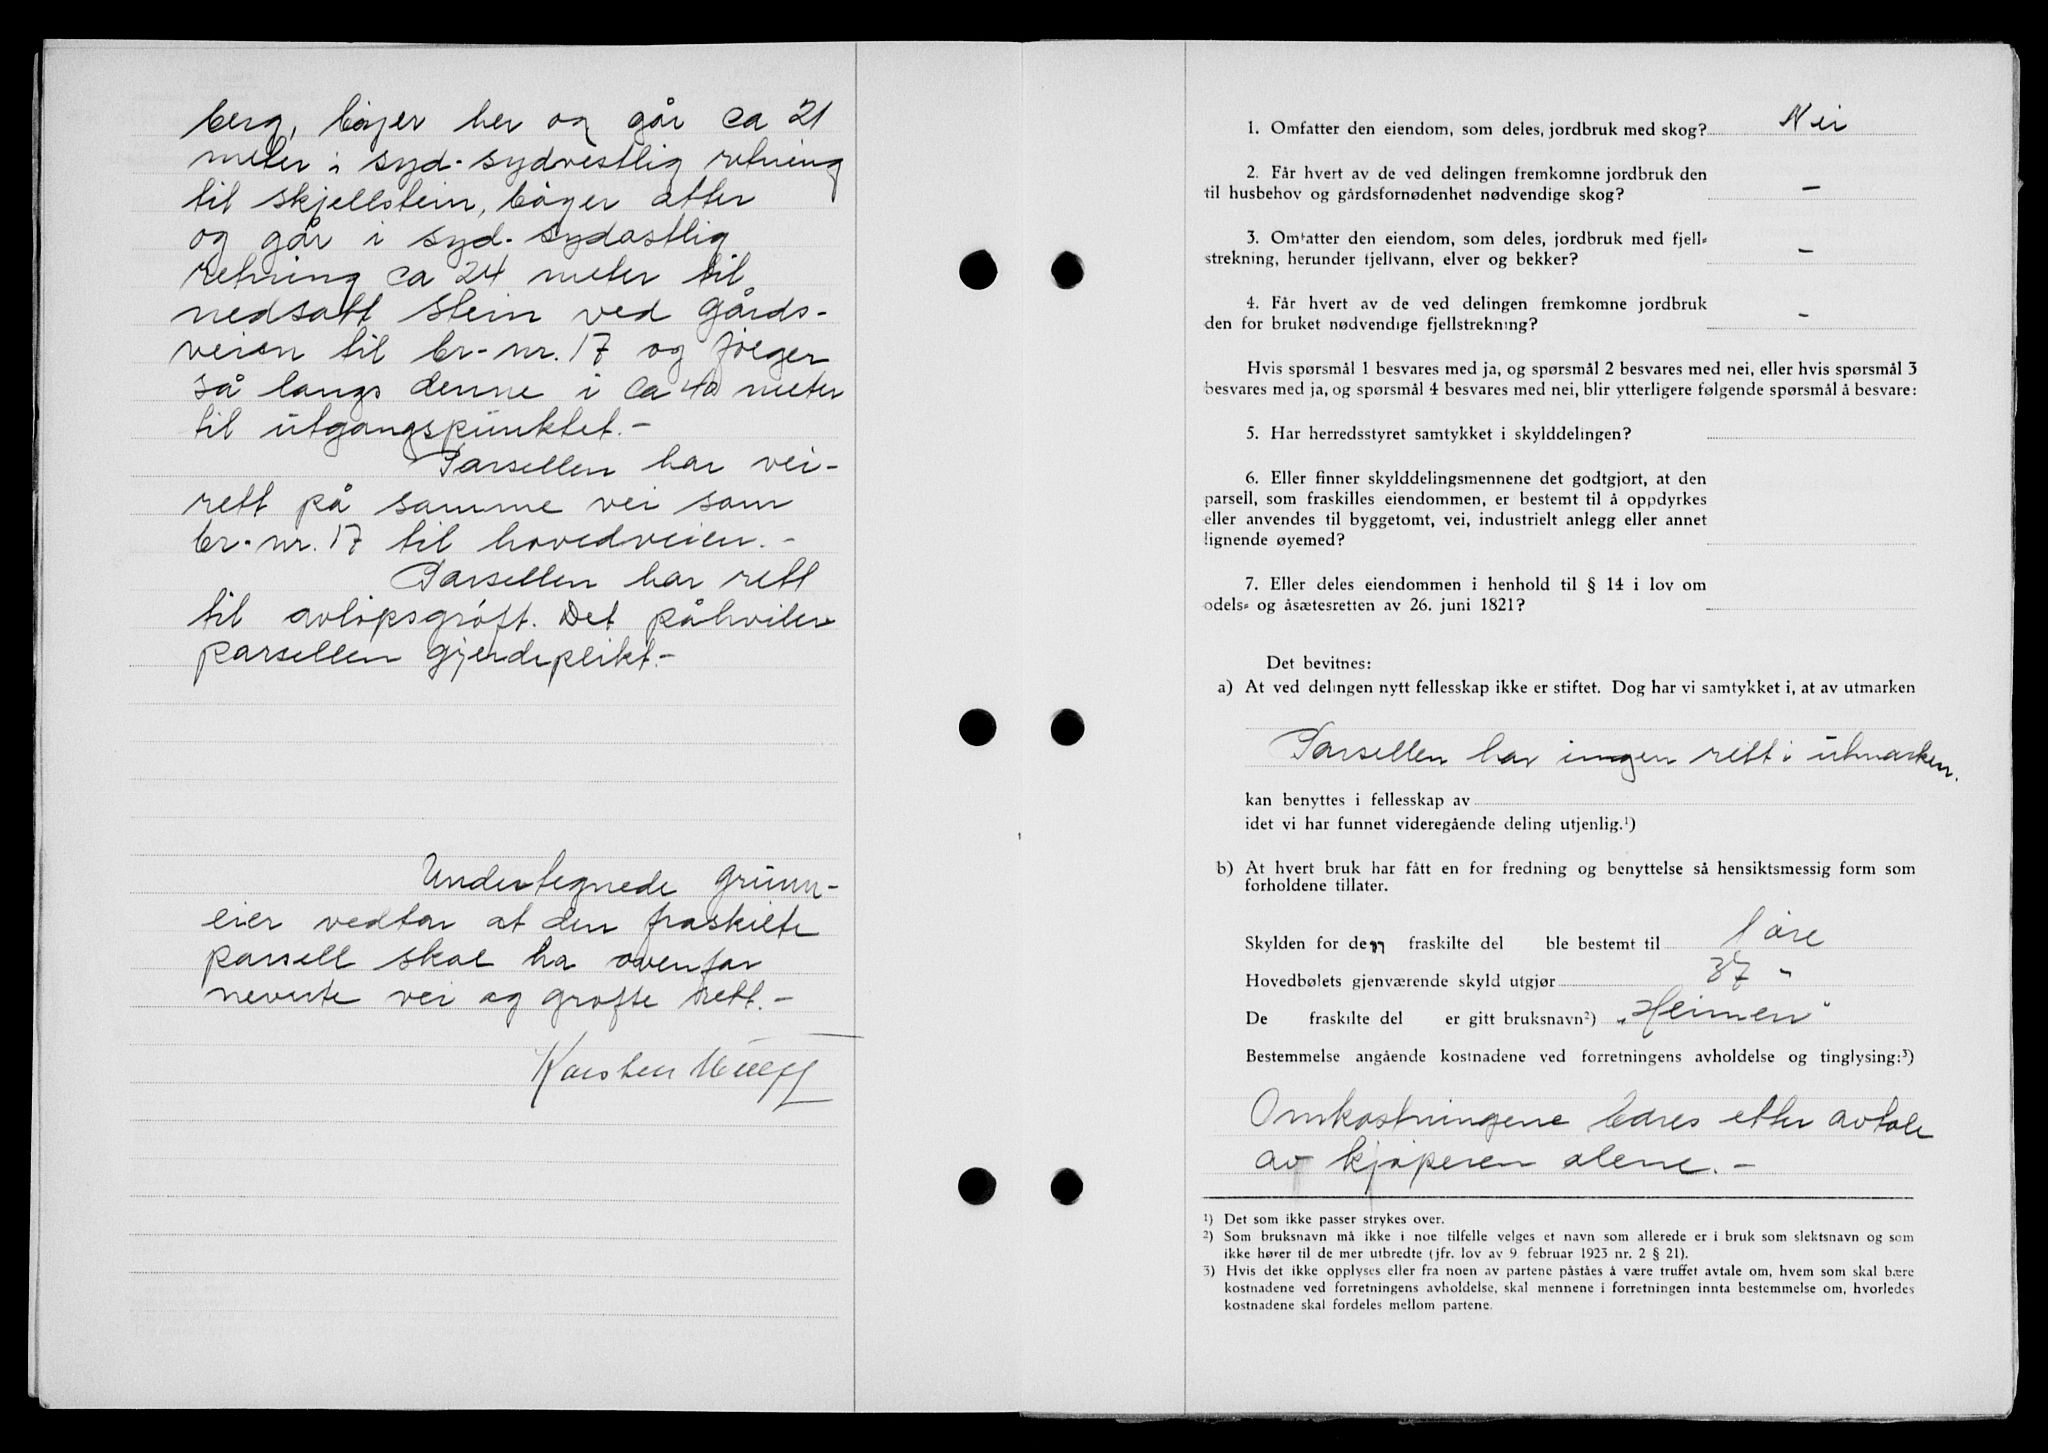 berg, bøyer her og går ca 21
meter i syd-sydvestlig retning
til skjellstein, bøyer atter
og går i syd-sydøstlig
retning ca 24 meter til
nedsatt stein ved gårds-
veien til br-nr. 17 og følger
så langs denne i ca 40 meter
til utgangspunktet.-
Parsellen har vei-
rett på samme vei som
br-nr. 17 til hovedveien.-
Parsellen har rett
til avløpsgrøft. Det påhviler
parsellen gjerdeplikt.-
Undertegnede grunn-
eier vedtar at den fraskilte
parsell skal ha ovenfor
nevnte vei og grøfte rett.-
Karsten
1. Omfatter den eiendom, som deles, jordbruk med skog? Nei
2. Får hvert av de ved delingen fremkomne jordbruk den
til husbehov og gårdsfornødenhet nødvendige skog? -
3. Omfatter den eiendom, som deles, jordbruk med fjell-
strekning, herunder fjellvann, elver og bekker? -
4. Får hvert av de ved delingen fremkomne jordbruk
den for bruket nødvendige fjellstrekning? -
Hvis spørsmål 1 besvares med ja, og spørsmål 2 besvares med nei, eller hvis spørsmål 3
besvares med ja, og spørsmål 4 besvares med nei, blir ytterligere følgende spørsmål å besvare:
5. Har herredsstyret samtykket i skylddelingen?
6. Eller finner skylddelingsmennene det godtgjort, at den
parsell, som fraskilles eiendommen, er bestemt til å oppdyrkes
eller anvendes til byggetomt, vei, industrielt anlegg eller annet
lignende øyemed?
7. Eller deles eiendommen i henhold til § 14 i lov om
odels- og åsætesretten av 26. juni 1821?
Det bevitnes:
a) At ved delingen nytt fellesskap ikke er stiftet. Dog har vi samtykket i, at av utmarken
Parsellen har ingen rett i utmarken.
kan benyttes i fellesskap av
idet vi har funnet videregående deling utjenlig.¹)
b) At hvert bruk har fått en for fredning og benyttelse så hensiktsmessig form som
forholdene tillater.
Skylden for den fraskilte del ble bestemt til 1 øre
Hovedbølets gjenværende skyld utgjør 37 "
De fraskilte del er gitt bruksnavn²) "Heimen"
Bestemmelse angående kostnadene ved forretningens avholdelse og tinglysing:³)
Omkostningene bæres etter avtale
av kjøperen alene.-
¹) Det som ikke passer strykes over.
²) Som bruksnavn må ikke i noe tilfelle velges et navn som allerede er i bruk som slektsnavn og som
ikke hører til de mer utbredte (jfr. lov av 9. februar 1923 nr. 2 § 21).
³) Hvis det ikke opplyses eller fra noen av partene påståes å være truffet avtale om, hvem som skal bære
kostnadene ved forretningens avholdelse, skal mennene i forretningen innta bestemmelse om, hvorledes
kostnadene skal fordeles mellom partene.